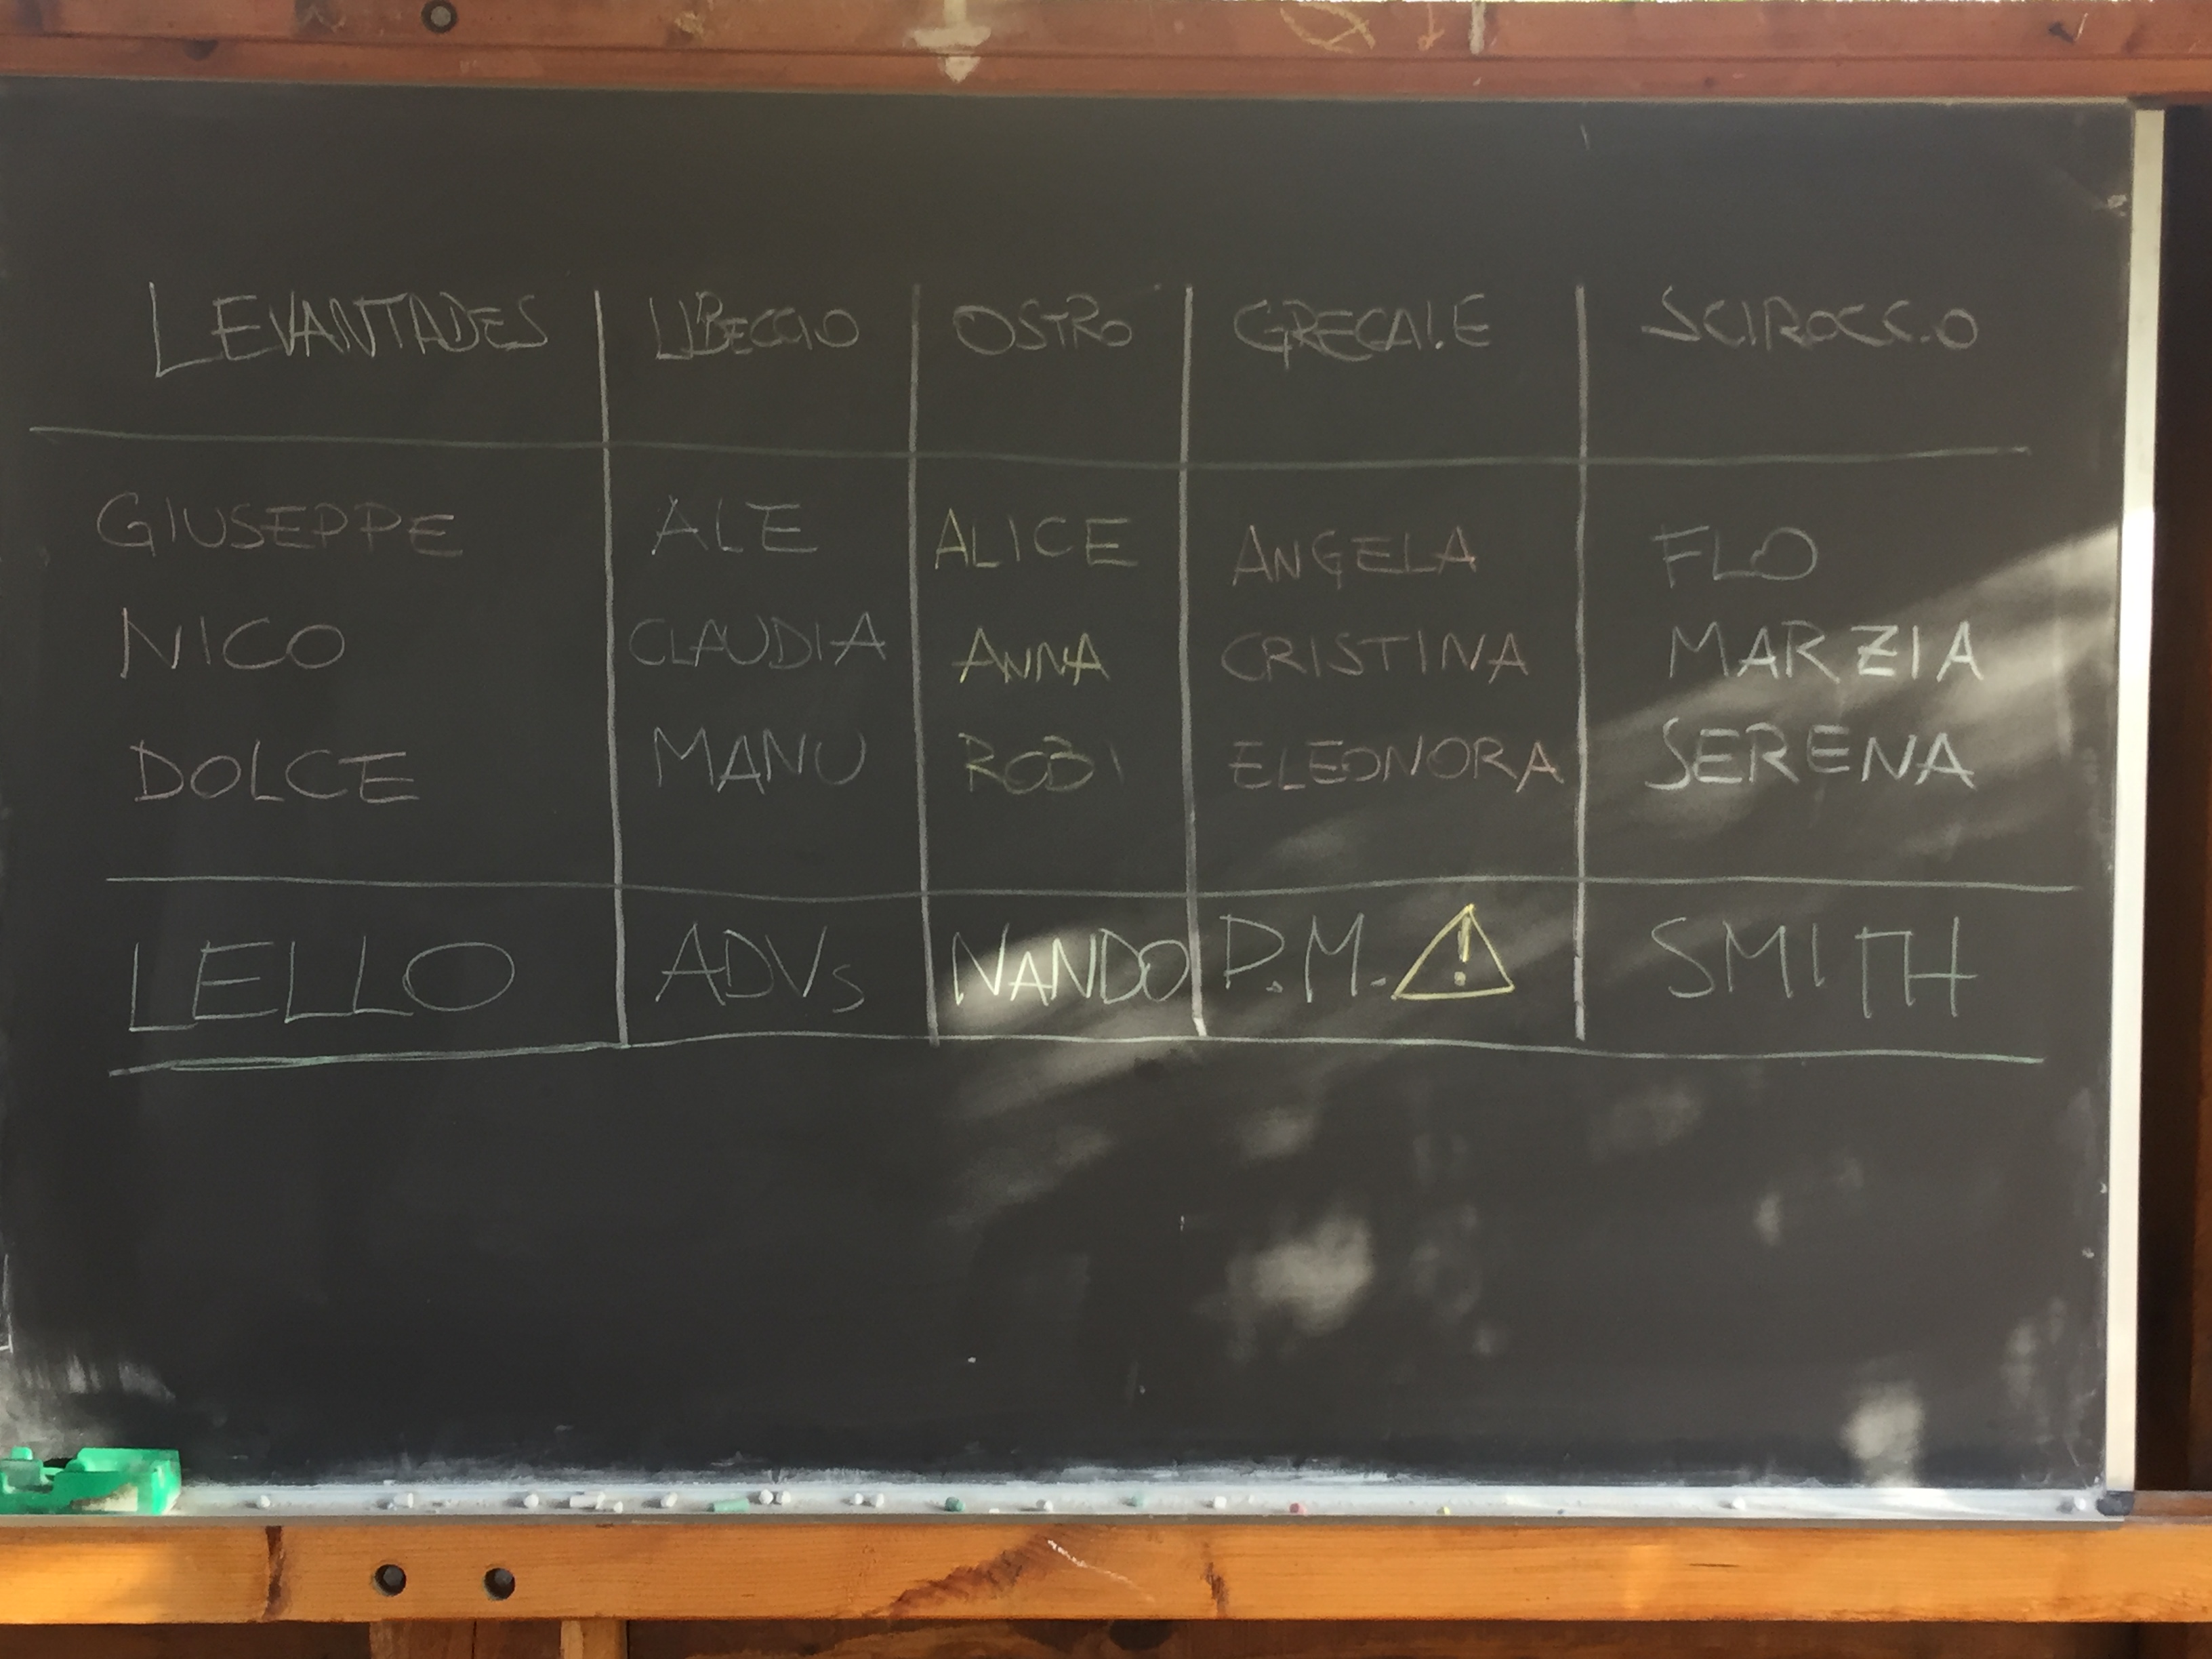 LEVANTADES LIBECCIO OSTRO GRECALE SCIROCCO
GIUSEPPE ALE ALICE ANGELA FLO
NICO CLAUDIA ANNA CRISTINA MARZIA
DOLCE MANU ROBI ELEONORA SERENA
LELLO ADVs NANDO P.M. ! SMITH